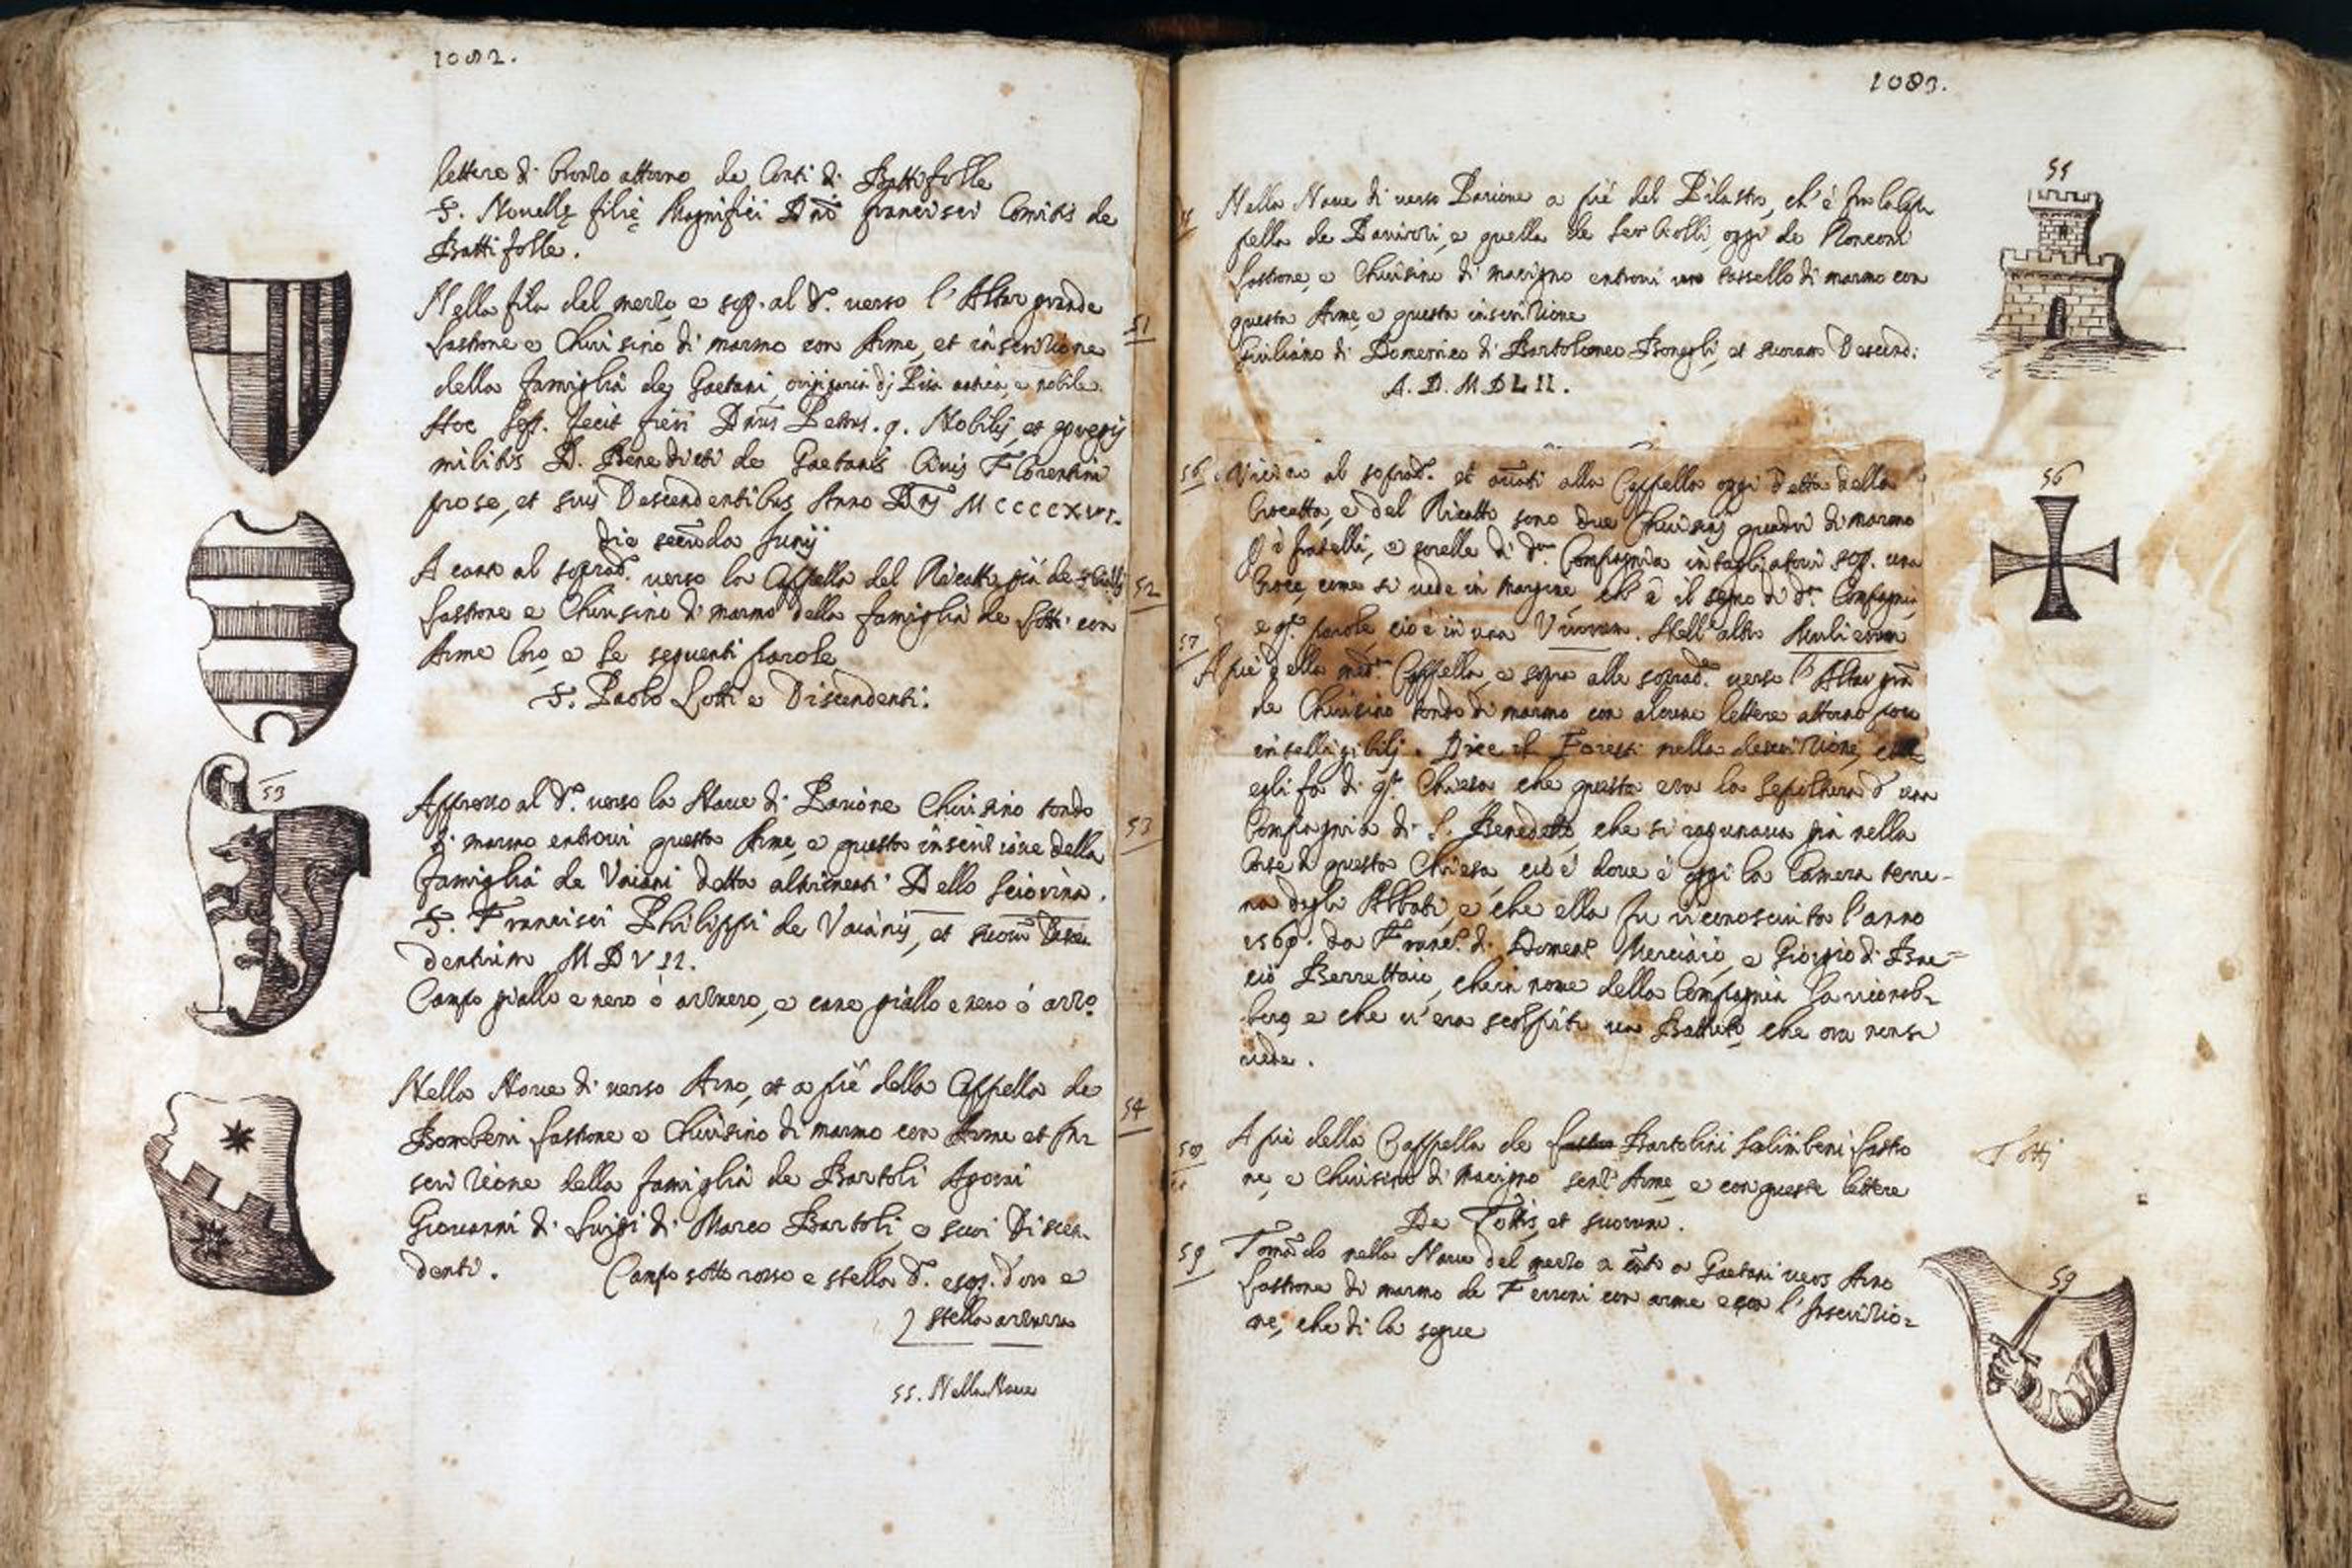 1082.
lettere di bronzo attorno de Conti di Battifolle
S. Novelle filie Magnifici Dni francisci Comitis de
Battifolle.
Nella fila del mezzo e sop. al d.º verso l'Altar grande
lastrone e Chiusino di marmo con Arme, et inscrizione
della famiglia de Gaetani, originaria di Pisa antica, e nobile.
Hoc Sep. fecit fieri Dnus Petrus. q. Nobilis, et egregij
militis D. Benedicti de Gaetanis Civis Florentini
pro se, et suis Descendentibus Anno Dni MCCCCXVI.
die secunda Junij
51
A canto al soprad. verso la Cappella del Ricatto già de
lastrone e Chiusino di marmo della famiglia de Lotti con
Arme loro e le seguenti parole
S. Paolo Lotti e Discendenti.
52
53
Appresso al d.º verso la Nave di Parione Chiusino tondo
di marmo entrovi questa Arme, e questa inscrizione della
famiglia de Vaiani detta altrimenti Dello Sciovina.
S. Francisci Philippi de Vaianis, et suorum Descen
dentium MDVII.
Campo giallo e nero o azzurro, e cane giallo e nero o azzº
53
Nella Nave di verso Arno, et a piè della Cappella de
Bombeni lastrone e Chiusino di marmo con Arme et In-
scrizione della famiglia de Bartoli
Giovanni di Luigi di Marco Bartoli, e suoi Discen-
denti. Campo sotto rosso e stella d. e sop. d'oro e
stella azzurra
54
55. Nella Nave
1083.
55
Nella Nave di verso Parione a piè del Pilastro, ch'è fra la Cap
pella de Davizzi, e quella de oggi de Ronconi
lastrone, e Chiusino di macigno entrovi un tassello di marmo con
questa Arme e questa inscrizione
Giuliano di Domenico di Bartolomeo et suorum Descend:
A. D. MDLII.
56
56. Vicino al soprad. et avanti alla Cappella oggi detta della
Crocetta, e del Ricatto sono due Chiusini quadri di marmo
p i fratelli, e sorelle di d.ª Compagnia intagliatovi sop. una
Croce, come si vede in margine ch'è il segno di d.ª Compagnia
e q.te parole, cioè in una Virorum. Nell'altro Mulierum
57
A piè della med.ª Cappella, e sopra alle soprad.e verso l'Altar gran
de Chiusino tondo di marmo con alcune lettere attorno poco
intelligibili. Dice il Foresti nella descrizione, che
egli fa di q.ta Chiesa che questa era la sepoltura d'una
Compagnia di S. Benedetto, che si ragunava già nella
Case di questa Chiesa, cioè dove è oggi la Camera terre-
na degli Abbati, e che ella fu riconosciuta l'anno
1569. da Franc.º di Domen.º Merciaio, e Giorgio di Bac-
cio Berrettaio, che in nome della Compagnia la riconob-
bero e che v'era scolpito un Battuto, che ora non si
vede.
58
A piè della Cappella de Bartolini Salimbeni lastro
ne, e Chiusino di macigno senz'Arme, e con queste lettere
De Tottis, et suorum.
Totti
59
Tornando nella Nave del mezzo a canto a Gaetani verso Arno
lastrone di marmo de Ferrini con arme e con l'Inscrizio-
ne, che di là segue
59